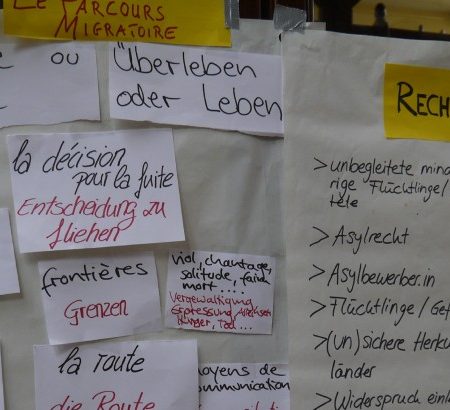 LE PARCOURS
MIGRATOIRE
ou
Überleben
oder Leben
la décision
pour la fuite
Entscheidung zu
fliehen
frontières
Grenzen
viol, chantage,
solitude, faim,
mort...
Vergewaltigung
Hunger, Tod...
la route
die Route
moyens de
communication
RECH
>unbegleitete mind
rige Flüchtlinge/
>Asylrecht
>Asylbewerber.in
>Flüchtlinge/Gef
>(un)sichere Herku
länder
>Widerspruch einl